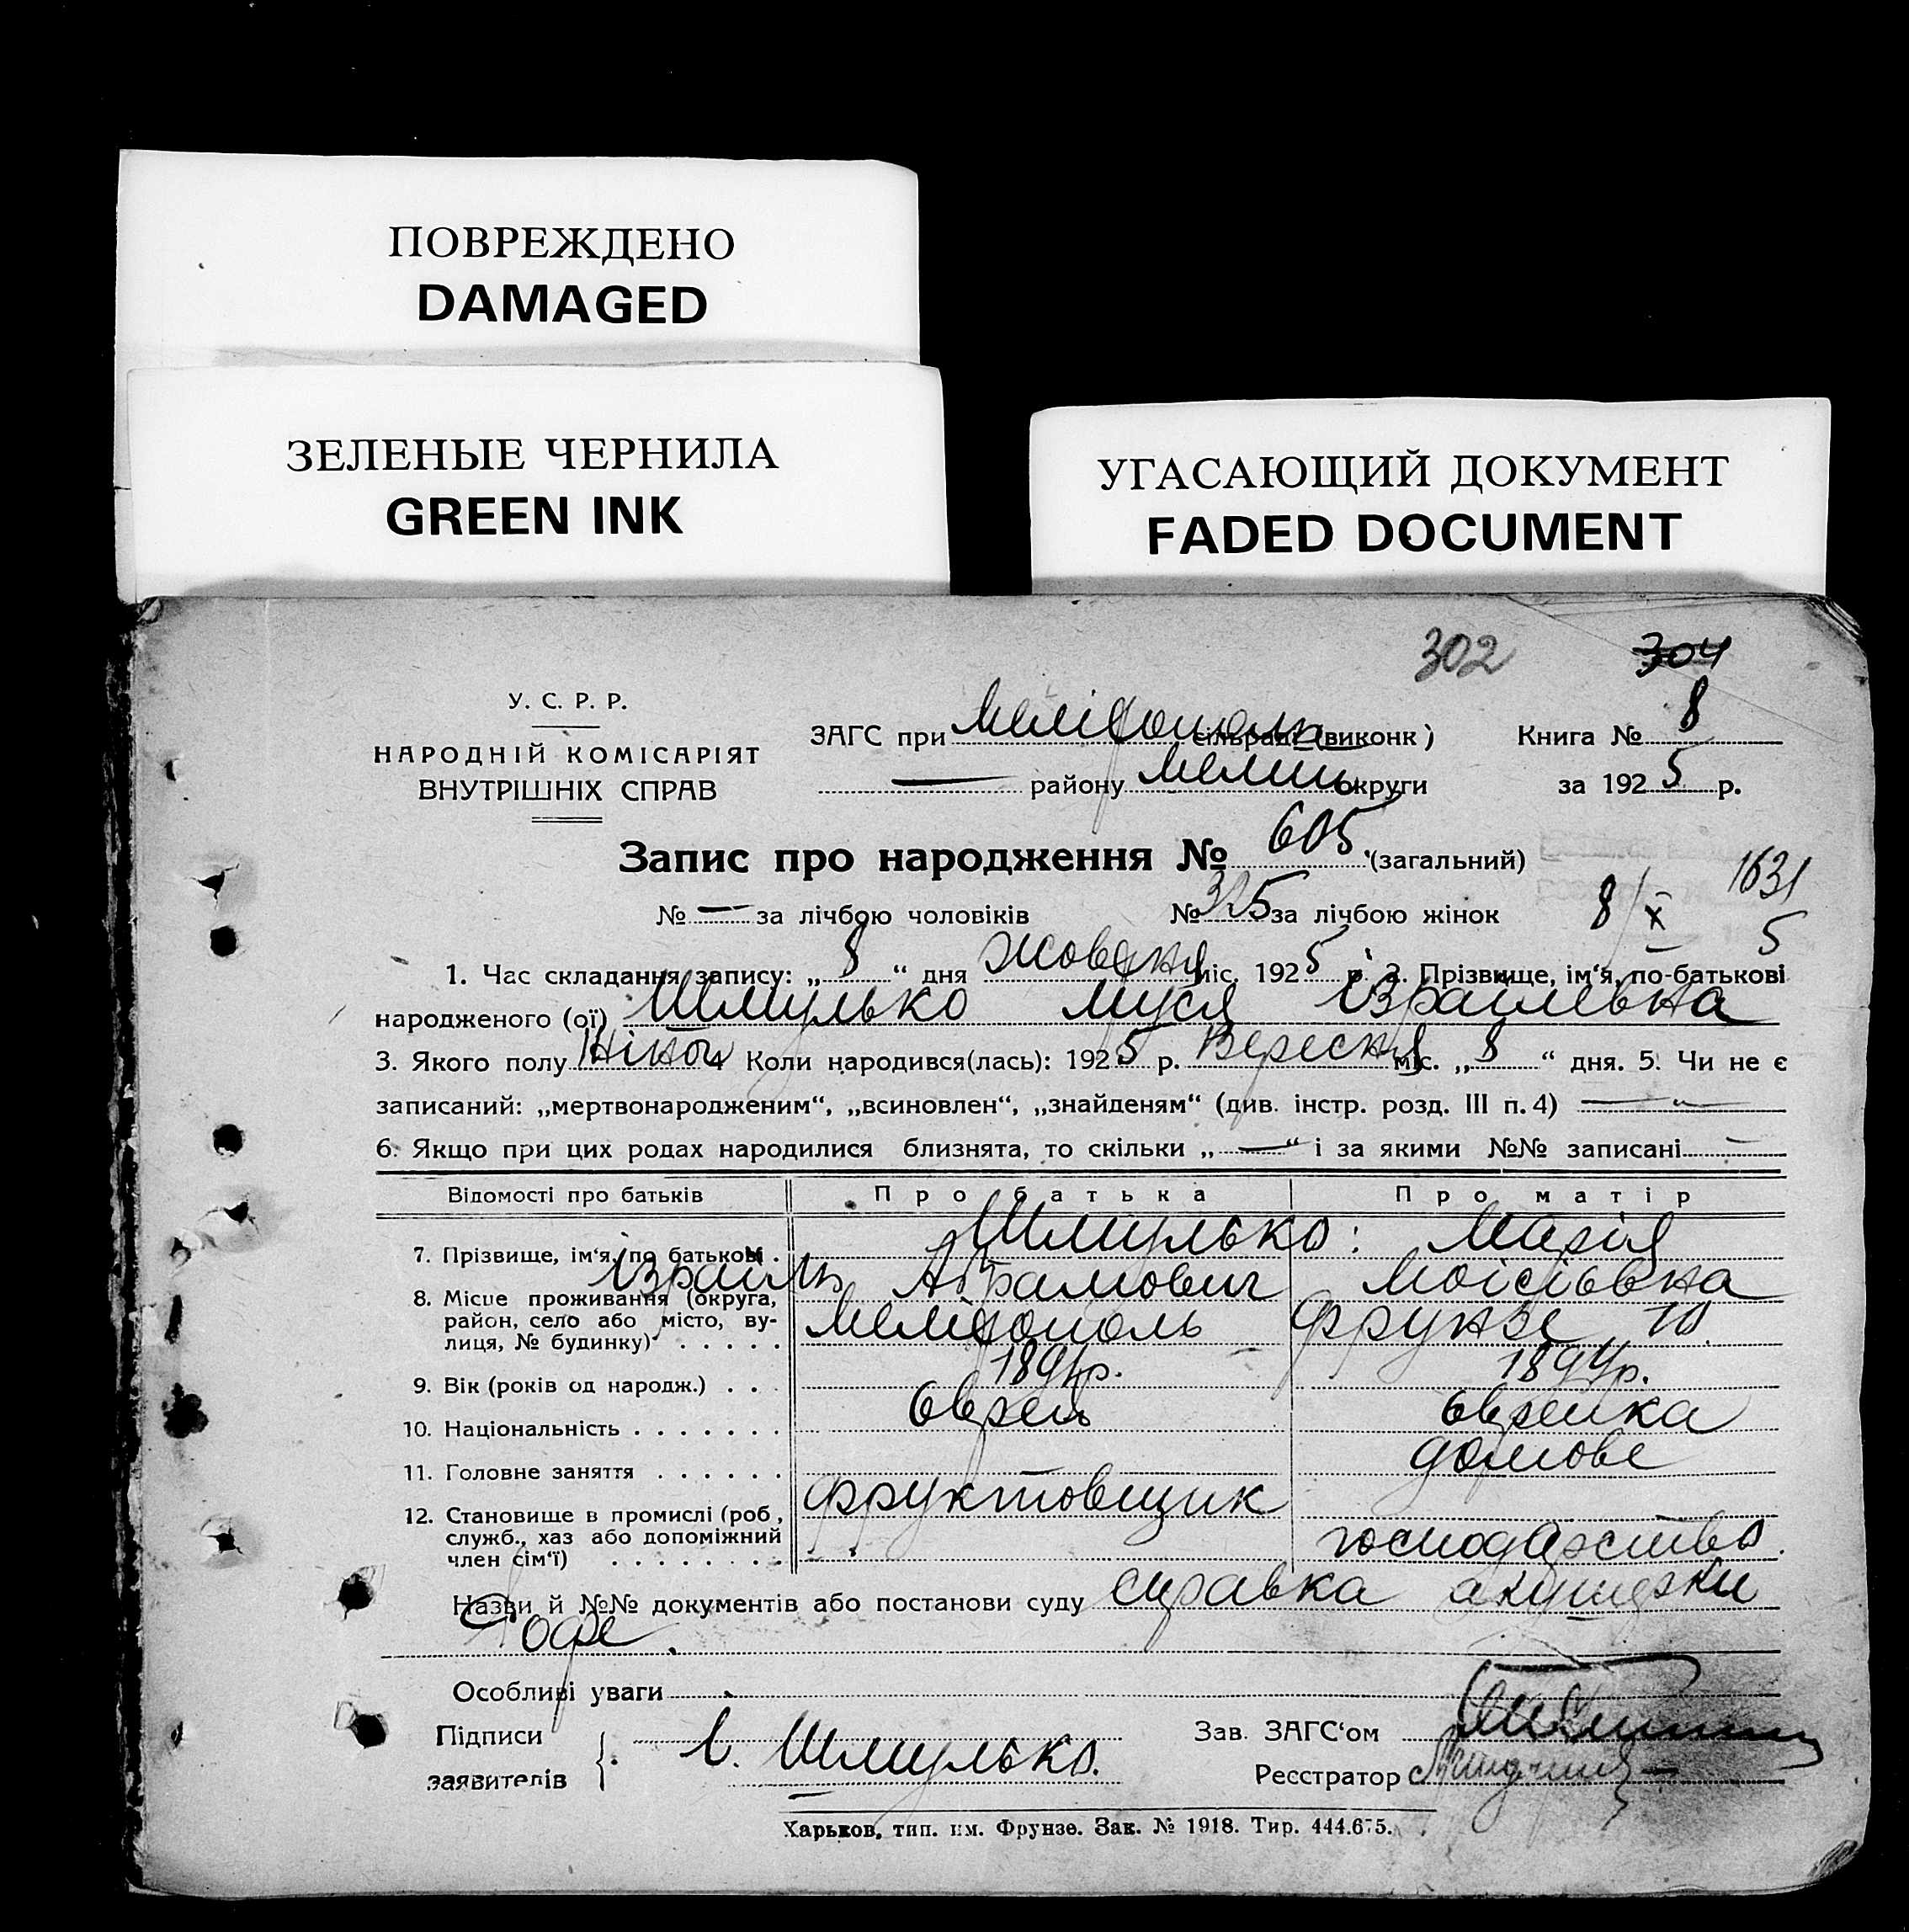 ПОВРЕЖДЕНО
DAMAGED
ЗЕЛЕНЫЕ ЧЕРНИЛА
GREEN INK
УГАСАЮЩИЙ ДОКУМЕНТ
FADED DOCUMENT
302 304
У. С. Р. Р.
НАРОДНІЙ КОМІСАРІЯТ
ВНУТРІШНІХ СПРАВ
ЗАГС при Мелітополь сільраді (виконк) Книга № 8
— району Мелит округи за 1925 р.
Запис про народження № 605. (загальний)
1631
№ — за лічбою чоловіків № 325 за лічбою жінок 8/X 5
1. Час складання запису: „8“ дня Жовтня міс. 1925 р. 2. Прізвище, ім‘я, по-батькові
народженого (ої) Шмулько Муся Ізраілевна
3. Якого полу Жіноч 4 Коли народився(лась): 1925 р. Вересня міс. „8“ дня. 5. Чи не є
записаний: „мертвонародженим“, „всиновлен“, „знайденям“ (див. інстр. розд. III п. 4) — „
6. Якщо при цих родах народилися близнята, то скільки „—“ і за якими №№ записані —
Відомості про батьків Про батька Про матір
7. Прізвище, ім‘я, по батькові . Шмулько: Марія
Ізраіль Абрамович Моісіївна
8. Місце проживання (округа,
район, село або місто, ву-
лиця, № будинку) . . . . . Мелітополь Фрунзе
9. Вік (років од народж.) . . . 1894р.
10. Національність . . . . . . . Єврей Єврейка
11. Головне заняття . . . . . . домове
12. Становище в промислі (роб,
служб., хаз або допоміжний
член сім‘ї) . . . . . . . . Фруктовщик господарство.
Назви й №№ документів або постанови суду справка акушерки
Особливі уваги
Підписи
заявителів Шмулько.
Зав. ЗАГС‘ом
Реєстратор
Харьков, тип. им. Фрунзе. Зак. № 1918. Тир. 444.675.